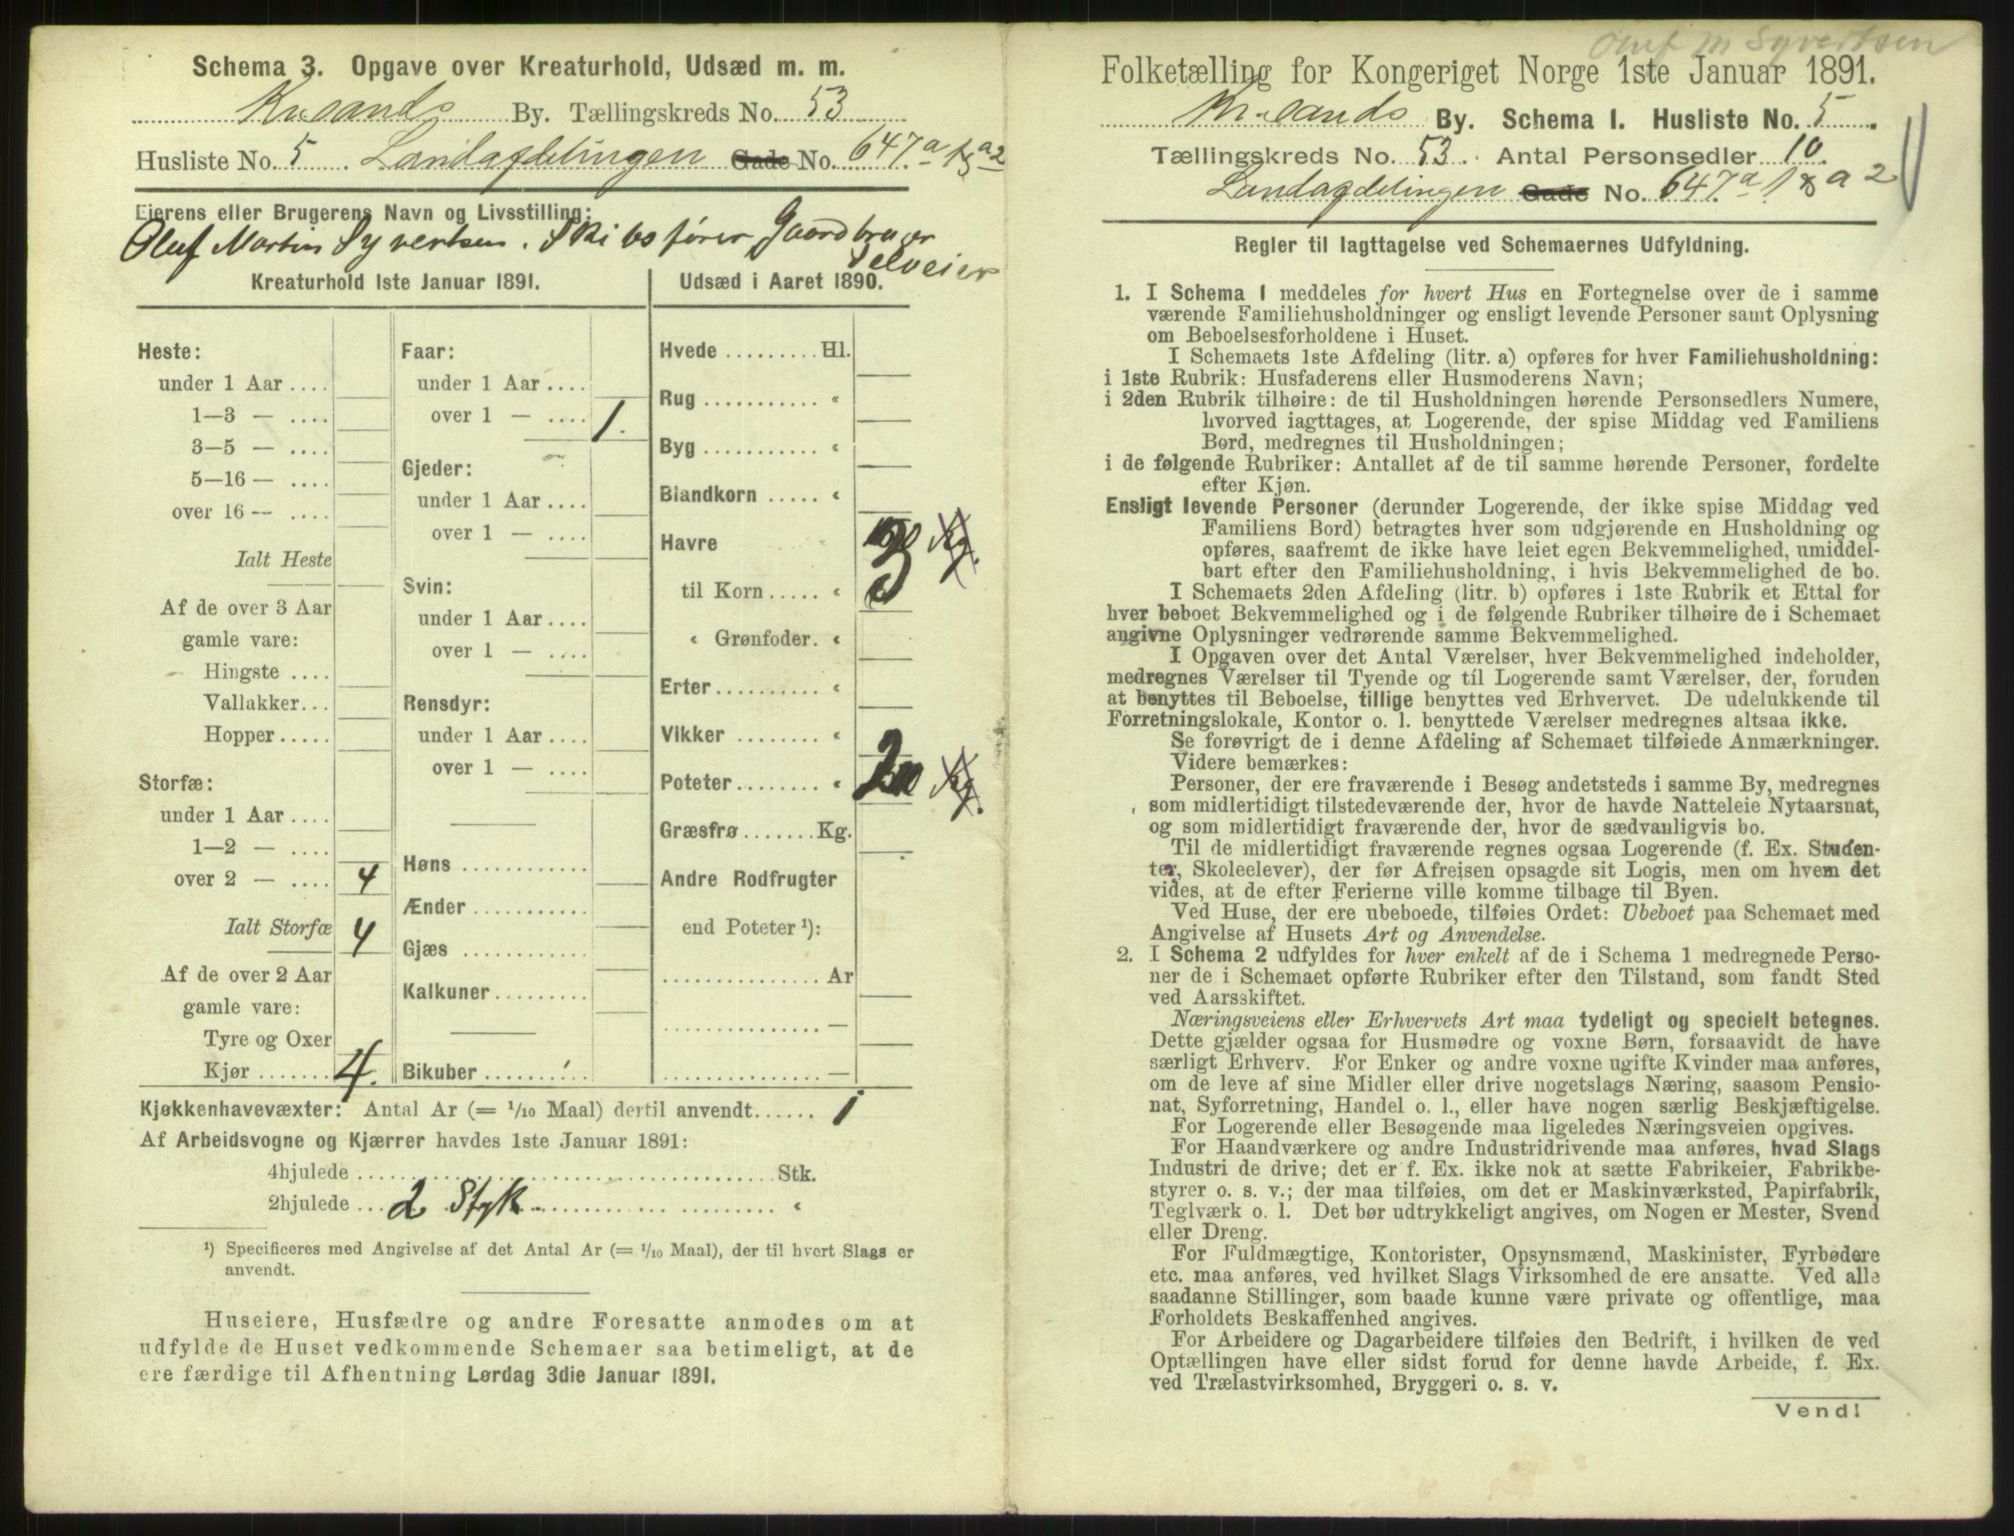 Schema 3. Opgave over Kreaturhold, Udsæd m. m.
Kr.sands By. Tællingskreds No. 53
Husliste No. 5. Landafdelingen Gade No. 647.a 15 a2
Eierens eller Brugerens Navn og Livsstilling:
Oluf Martin Syvertsen. Skibsfører, Gaardbruger
Selveier
Kreaturhold 1ste Januar 1891.
Heste:
under 1 Aar ....
1—3 — ....
3—5 — ....
5—16 — ....
over 16 — ....
Ialt Heste
Af de over 3 Aar
gamle vare:
Hingste ....
Vallakker...
Hopper.....
Storfæ:
under 1 Aar ....
1—2 — ....
over 2 — .... 4
Ialt Storfæ 4
Af de over 2 Aar
gamle vare:
Tyre og Oxer
Kjør ....... 4.
Faar:
under 1 Aar ....
over 1 — .... 1.
Gjeder:
under 1 Aar ....
over 1 — ....
Svin:
under 1 Aar ....
over 1 — ....
Rensdyr:
under 1 Aar ....
over 1 — ....
Høns ............
Ænder ............
Gjæs ............
Kalkuner .........
Bikuber ..........
Udsæd i Aaret 1890.
Hvede ......... Hl.
Rug ........... «
Byg ........... «
Blandkorn ..... «
Havre
til Korn ..... « 3 Kg.
« Grønfoder. «
Erter .......... «
Vikker ........ «
Poteter ........ « 2 Kg.
Græsfrø ....... Kg.
Andre Rodfrugter
end Poteter ¹):
............... Ar
............... —
............... —
Kjøkkenhavevæxter: Antal Ar (= 1/10 Maal) dertil anvendt...... 1
Af Arbeidsvogne og Kjærrer havdes 1ste Januar 1891:
4hjulede ........................ Stk.
2hjulede ... 2 Styk ............ «
¹) Specificeres med Angivelse af det Antal Ar (= 1/10 Maal), der til hvert Slags er
anvendt.
Huseiere, Husfædre og andre Foresatte anmodes om at
udfylde de Huset vedkommende Schemaer saa betimeligt, at de
ere færdige til Afhentning Lørdag 3die Januar 1891.
Oluf M Syvertsen
Folketælling for Kongeriget Norge 1ste Januar 1891.
Kr.sands By. Schema I. Husliste No. 5.
Tællingskreds No. 53. Antal Personsedler 10.
Landafdelingen Gade No. 647.a a 2
Regler til Iagttagelse ved Schemaernes Udfyldning.
1. I Schema I meddeles for hvert Hus en Fortegnelse over de i samme
værende Familiehusholdninger og ensligt levende Personer samt Oplysning
om Beboelsesforholdene i Huset.
I Schemaets 1ste Afdeling (litr. a) opføres for hver Familiehusholdning:
i 1ste Rubrik: Husfaderens eller Husmoderens Navn;
i 2den Rubrik tilhøire: de til Husholdningen hørende Personsedlers Numere,
hvorved iagttages, at Logerende, der spise Middag ved Familiens
Bord, medregnes til Husholdningen;
i de følgende Rubriker: Antallet af de til samme hørende Personer, fordelte
efter Kjøn.
Ensligt levende Personer (derunder Logerende, der ikke spise Middag ved
Familiens Bord) betragtes hver som udgjørende en Husholdning og
opføres, saafremt de ikke have leiet egen Bekvemmelighed, umiddel-
bart efter den Familiehusholdning, i hvis Bekvemmelighed de bo.
I Schemaets 2den Afdeling (litr. b) opføres i 1ste Rubrik et Ettal for
hver beboet Bekvemmelighed og i de følgende Rubriker tilhøire de i Schemaet
angivne Oplysninger vedrørende samme Bekvemmelighed.
I Opgaven over det Antal Værelser, hver Bekvemmelighed indeholder,
medregnes Værelser til Tyende og til Logerende samt Værelser, der, foruden
at benyttes til Beboelse, tillige benyttes ved Erhvervet. De udelukkende til
Forretningslokale, Kontor o. l. benyttede Værelser medregnes altsaa ikke.
Se forøvrigt de i denne Afdeling af Schemaet tilføiede Anmærkninger.
Videre bemærkes:
Personer, der ere fraværende i Besøg andetsteds i samme By, medregnes
som midlertidigt tilstedeværende der, hvor de havde Natteleie Nytaarsnat,
og som midlertidigt fraværende der, hvor de sædvanligvis bo.
Til de midlertidigt fraværende regnes ogsaa Logerende (f. Ex. Studen-
ter, Skoleelever), der før Afreisen opsagde sit Logis, men om hvem det
vides, at de efter Ferierne ville komme tilbage til Byen.
Ved Huse, der ere ubeboede, tilføies Ordet: Ubeboet paa Schemaet med
Angivelse af Husets Art og Anvendelse.
2. I Schema 2 udfyldes for hver enkelt af de i Schema 1 medregnede Perso-
ner de i Schemaet opførte Rubriker efter den Tilstand, som fandt Sted
ved Aarsskiftet.
Næringsveiens eller Erhvervets Art maa tydeligt og specielt betegnes.
Dette gjælder ogsaa for Husmødre og voxne Børn, forsaavidt de have
særligt Erhverv. For Enker og andre voxne ugifte Kvinder maa anføres,
om de leve af sine Midler eller drive nogetslags Næring, saasom Pensio-
nat, Syforretning, Handel o. l., eller have nogen særlig Beskjæftigelse.
For Logerende eller Besøgende maa ligeledes Næringsveien opgives.
For Haandværkere og andre Industridrivende maa anføres, hvad Slags
Industri de drive; det er f. Ex. ikke nok at sætte Fabrikeier, Fabrikbe-
styrer o. s. v.; der maa tilføies, om det er Maskinværksted, Papirfabrik,
Teglværk o. l. Det bør udtrykkeligt angives, om Nogen er Mester, Svend
eller Dreng.
For Fuldmægtige, Kontorister, Opsynsmænd, Maskinister, Fyrbødere
etc. maa anføres, ved hvilket Slags Virksomhed de ere ansatte. Ved alle
saadanne Stillinger, som baade kunne være private og offentlige, maa
Forholdets Beskaffenhed angives.
For Arbeidere og Dagarbeidere tilføies den Bedrift, i hvilken de ved
Optællingen have eller sidst forud for denne havde Arbeide, f. Ex.
ved Trælastvirksomhed, Bryggeri o. s. v.
Vend!